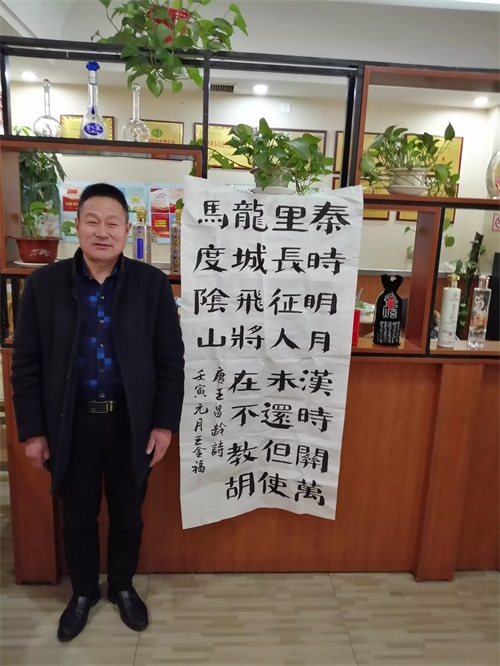 秦時明月漢時關萬
里長征人未還但使
龍城飛將在不教胡
馬度陰山
唐王昌齡詩
壬寅元月王金福